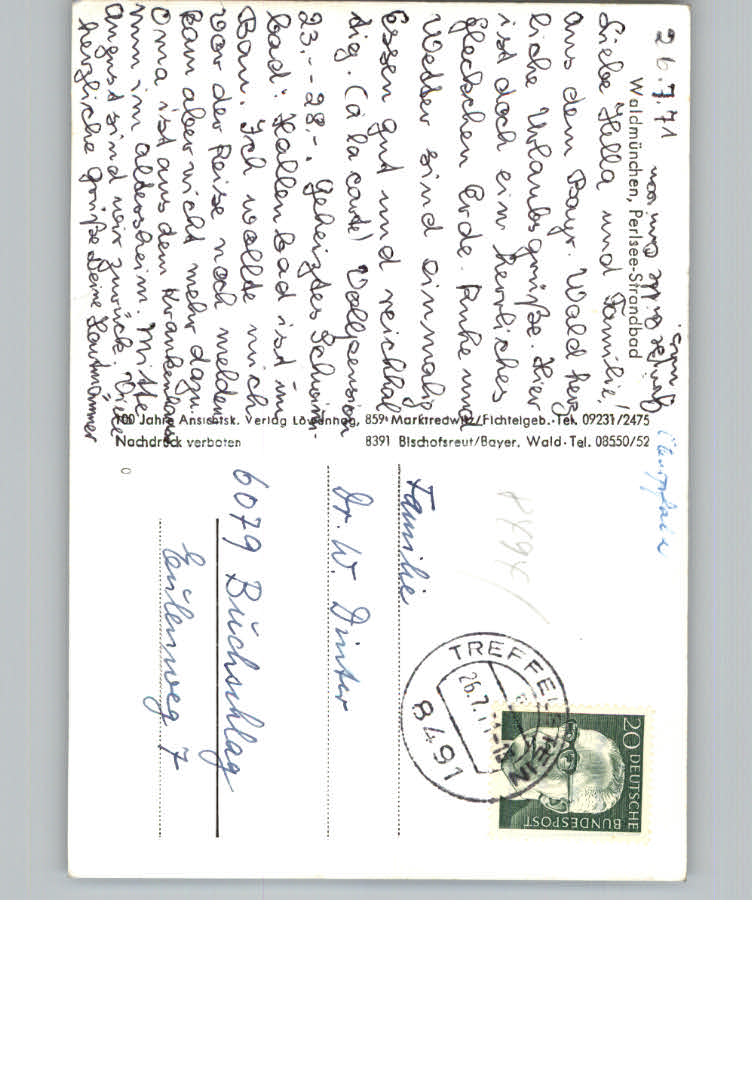 26.7.71
Waldmünchen, Perlsee-Strandbad
Liebe Hella und Familie!
Aus dem Bayr. Wald herz
liche Urlaubsgrüße. Hier
ist doch ein herrliches
Fleckchen Erde. Ruhe und
Wetter sind einmalig
Essen gut und reichhal
tig. (à la carte) Vollpension
23.-- 28.-. geheiztes Schwimm-
bad. Hallenbad ist im
Bau. Ich wollte mich
vor der Reise noch melden
kam aber nicht mehr dazu.
Oma ist aus dem Krankenhaus
nun im Altersheim. Mitte
August sind wir zurück. Viele
herzliche Grüße Deine
100 Jahre Ansichtsk. Verlag Löwenhag, 859 Marktredwitz/Fichtelgeb. · Tel. 09231/2475
Nachdruck verboten 8391 Bischofsreut/Bayer. Wald · Tel. 08550/52
Familie
Dr. W. Dinter
6079 Buchschlag
Eulenweg 7
TREFFELSTEIN
26.7.71
8491
20 DEUTSCHE
BUNDESPOST